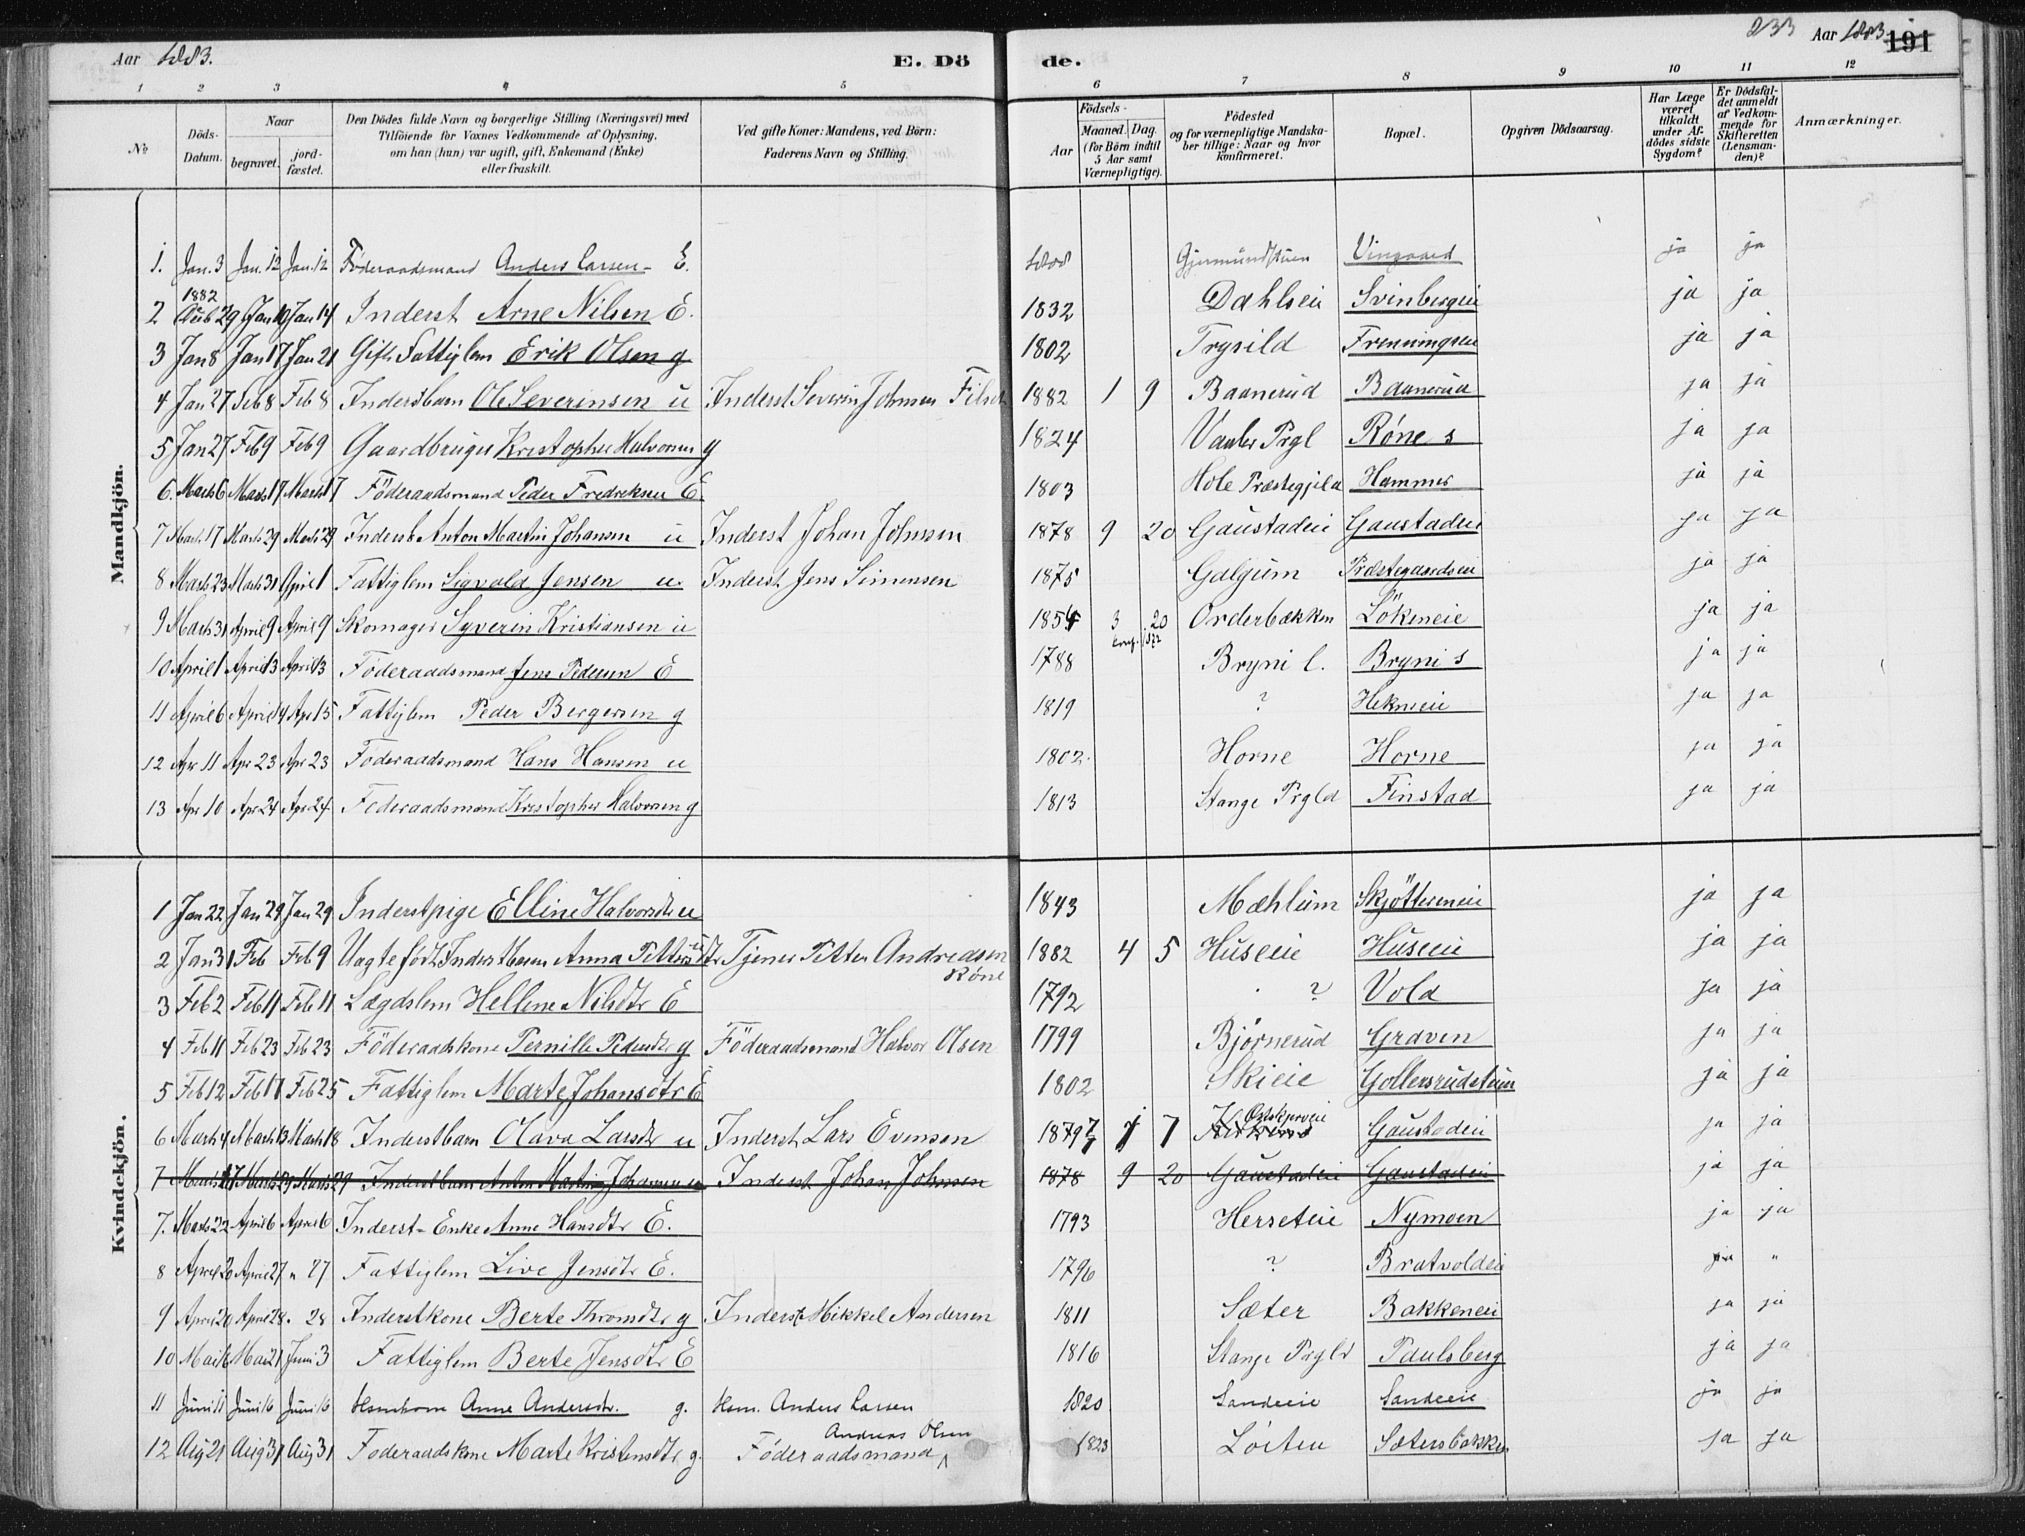 Aar 1883.
E. Döde.
233 Aar 1883. 191
1 2 3 4 5 6 7 8 9 10 11 12
No
Döds-Datum.
Naar
begravet.
jordfæstet.
Den Dödes fulde Navn og borgerlige Stilling (Næringsvei) med Tilföiende for Voxnes Vedkommende af Oplysning, om han (hun) var ugift, gift, Enkemand (Enke) eller fraskilt.
Ved gifte Koner: Mandens, ved Börn: Faderens Navn og Stilling.
Födsels-
Aar
Maaned. Dag.
(for Börn indtil 5 Aar samt Værnepligtige).
Födested og for værnepligtige Mandskaber tillige: Naar og hvor konfirmeret.
Bopæl.
Opgiven Dödsaarsag.
Har Læge været tilkaldt under Afdödes sidste Sygdom?
Er Dödsfaldet anmeldt af Vedkommende for Skifteretten (Lensmanden)?
Anmærkninger.
Mandkjön.
1. Jan. 3 Jan. 12 Jan. 12 Föderaadsmand Anders Larsen - E. 1808 Vingaard ja ja
1882
2 29 Jan 10 Jan 14 Inderst Arne Nilsen E. 1832 Dahlseie Svinbergeie ja ja
3 Jan 8 Jan 17 Jan 21 Gift Fattiglem Erik Olsen g 1802 Trysild ja ja
4 Jan 27 Feb 8 Feb 8 Inderstbarn Ole Severinsen u Inderst Severin Johnsen 1882 1 9 Baanerud Baanerud ja ja
5 Jan 27 Feb 9 Feb 9 Gaardbruger Kristopher Halvorsen g 1824 Vaaler Prgl Röne s ja ja
6. Marts 6 Marts 17 Marts 17 Föderaadsmand Peder Fredriksen E 1803 Hole Præstegjeld Hammer ja ja
7 Marts 17 Marts 29 Marts 29 Inderst Anton Martin Johansen u Inderst Johan Johnsen 1878 9 20 Gaustadeie Gaustadeie ja ja
8 Marts 23 Marts 31 April 1 Fattiglem Sigvald Jensen u. Inderst Jens Simensen 1875 Galgum Præstegaardseie ja ja
9 Marts 31 April 9 April 9 Skomager Syverin Kristiansen u 1854 3 20 Orderbækken Lökeneie ja ja
10 April 1 April 13 April 13 Föderaadsmand Jens Pedersen E 1788 Bryni l. Bryni s ja ja
11 April 6 April 14 Apr 15 Fattiglem Peder Bergersen g 1819 ? Hekneeie ja ja
12 Apr 11 Apr 23 Apr 23 Föderaadsmand Hans Hansen u 1802. Horne Horne ja ja
13 Apr 10 Apr 24 Apr 24 Föderaadsmand Kristopher Halvorsen g 1813 Stange Prgld Finstad ja ja
Kvindekjön.
1 Jan 22 Jan 29 Jan 29 Inderstpige Elline Halvorsdtr u 1843 Mæhlum Skjötteneie ja ja
2 Jan 31 Feb Feb 9 Uægtefödt Inderstbarn Anna Pettersdtr u Tjener Petter Andreasen Röne 1882 4 5 Huseie Huseie ja ja
3 Feb 2 Feb 11 Feb 11 Lægdslem Hellene Nilsdtr E 1792 ? Vold ja ja
4 Feb 11 Feb 23 Feb 23 Föderaadskone Pernille Pedersdtr g Föderaadsmand Halvor Olsen 1799 Björnerud Graven ja ja
5 Feb 12 Feb 17 Feb 25 Fattiglem Marte Johansdtr E 1802 Skieie Gollersrudstuen ja ja
6 Marts 4 Marts 13 Marts 18 Inderstbarn Olava Larsdtr u Inderst Lars Evensen 1879 7 7 Gaustadeie ja ja
7 Marts 17 Marts 29 Marts 29 Inderstbarn Anton Martin Johansen u Inderst Johan Johnsen 1878 9 20 Gaustadeie Gaustadeie ja ja
7. Marts 22 April 6 April 6 Inderst-Enke Anne Hansdtr E. 1793 Herseteie Nymoen ja ja
8 April 20 April 27 " 27 Fattiglem Live Jensdtr E. 1796 ? Bratvoldeie ja "
9 April 20 April 28 " 28 Inderstkone Berte Thronsdtr g Inderst Mikkel Andersen 1811 Sæter Bakkeneie ja ja
10 Mai 6 Mai 21 Juni 3 Fattiglem Berte Jensdtr E 1816 Stange Prgld Paulsberg ja ja
11 Juni 11 Juni 16 Juni 16 Anne Andersdtr. g. Hsm. Anders Larsen 1820 Sandeeie Sandeeie ja ja
12 Aug 21 Aug 31 Aug 31 Föderaadskone Marte Kristensdtr g. Föderaadsmand Andreas Olsen 1823 Löiten Sætersbakken ja ja